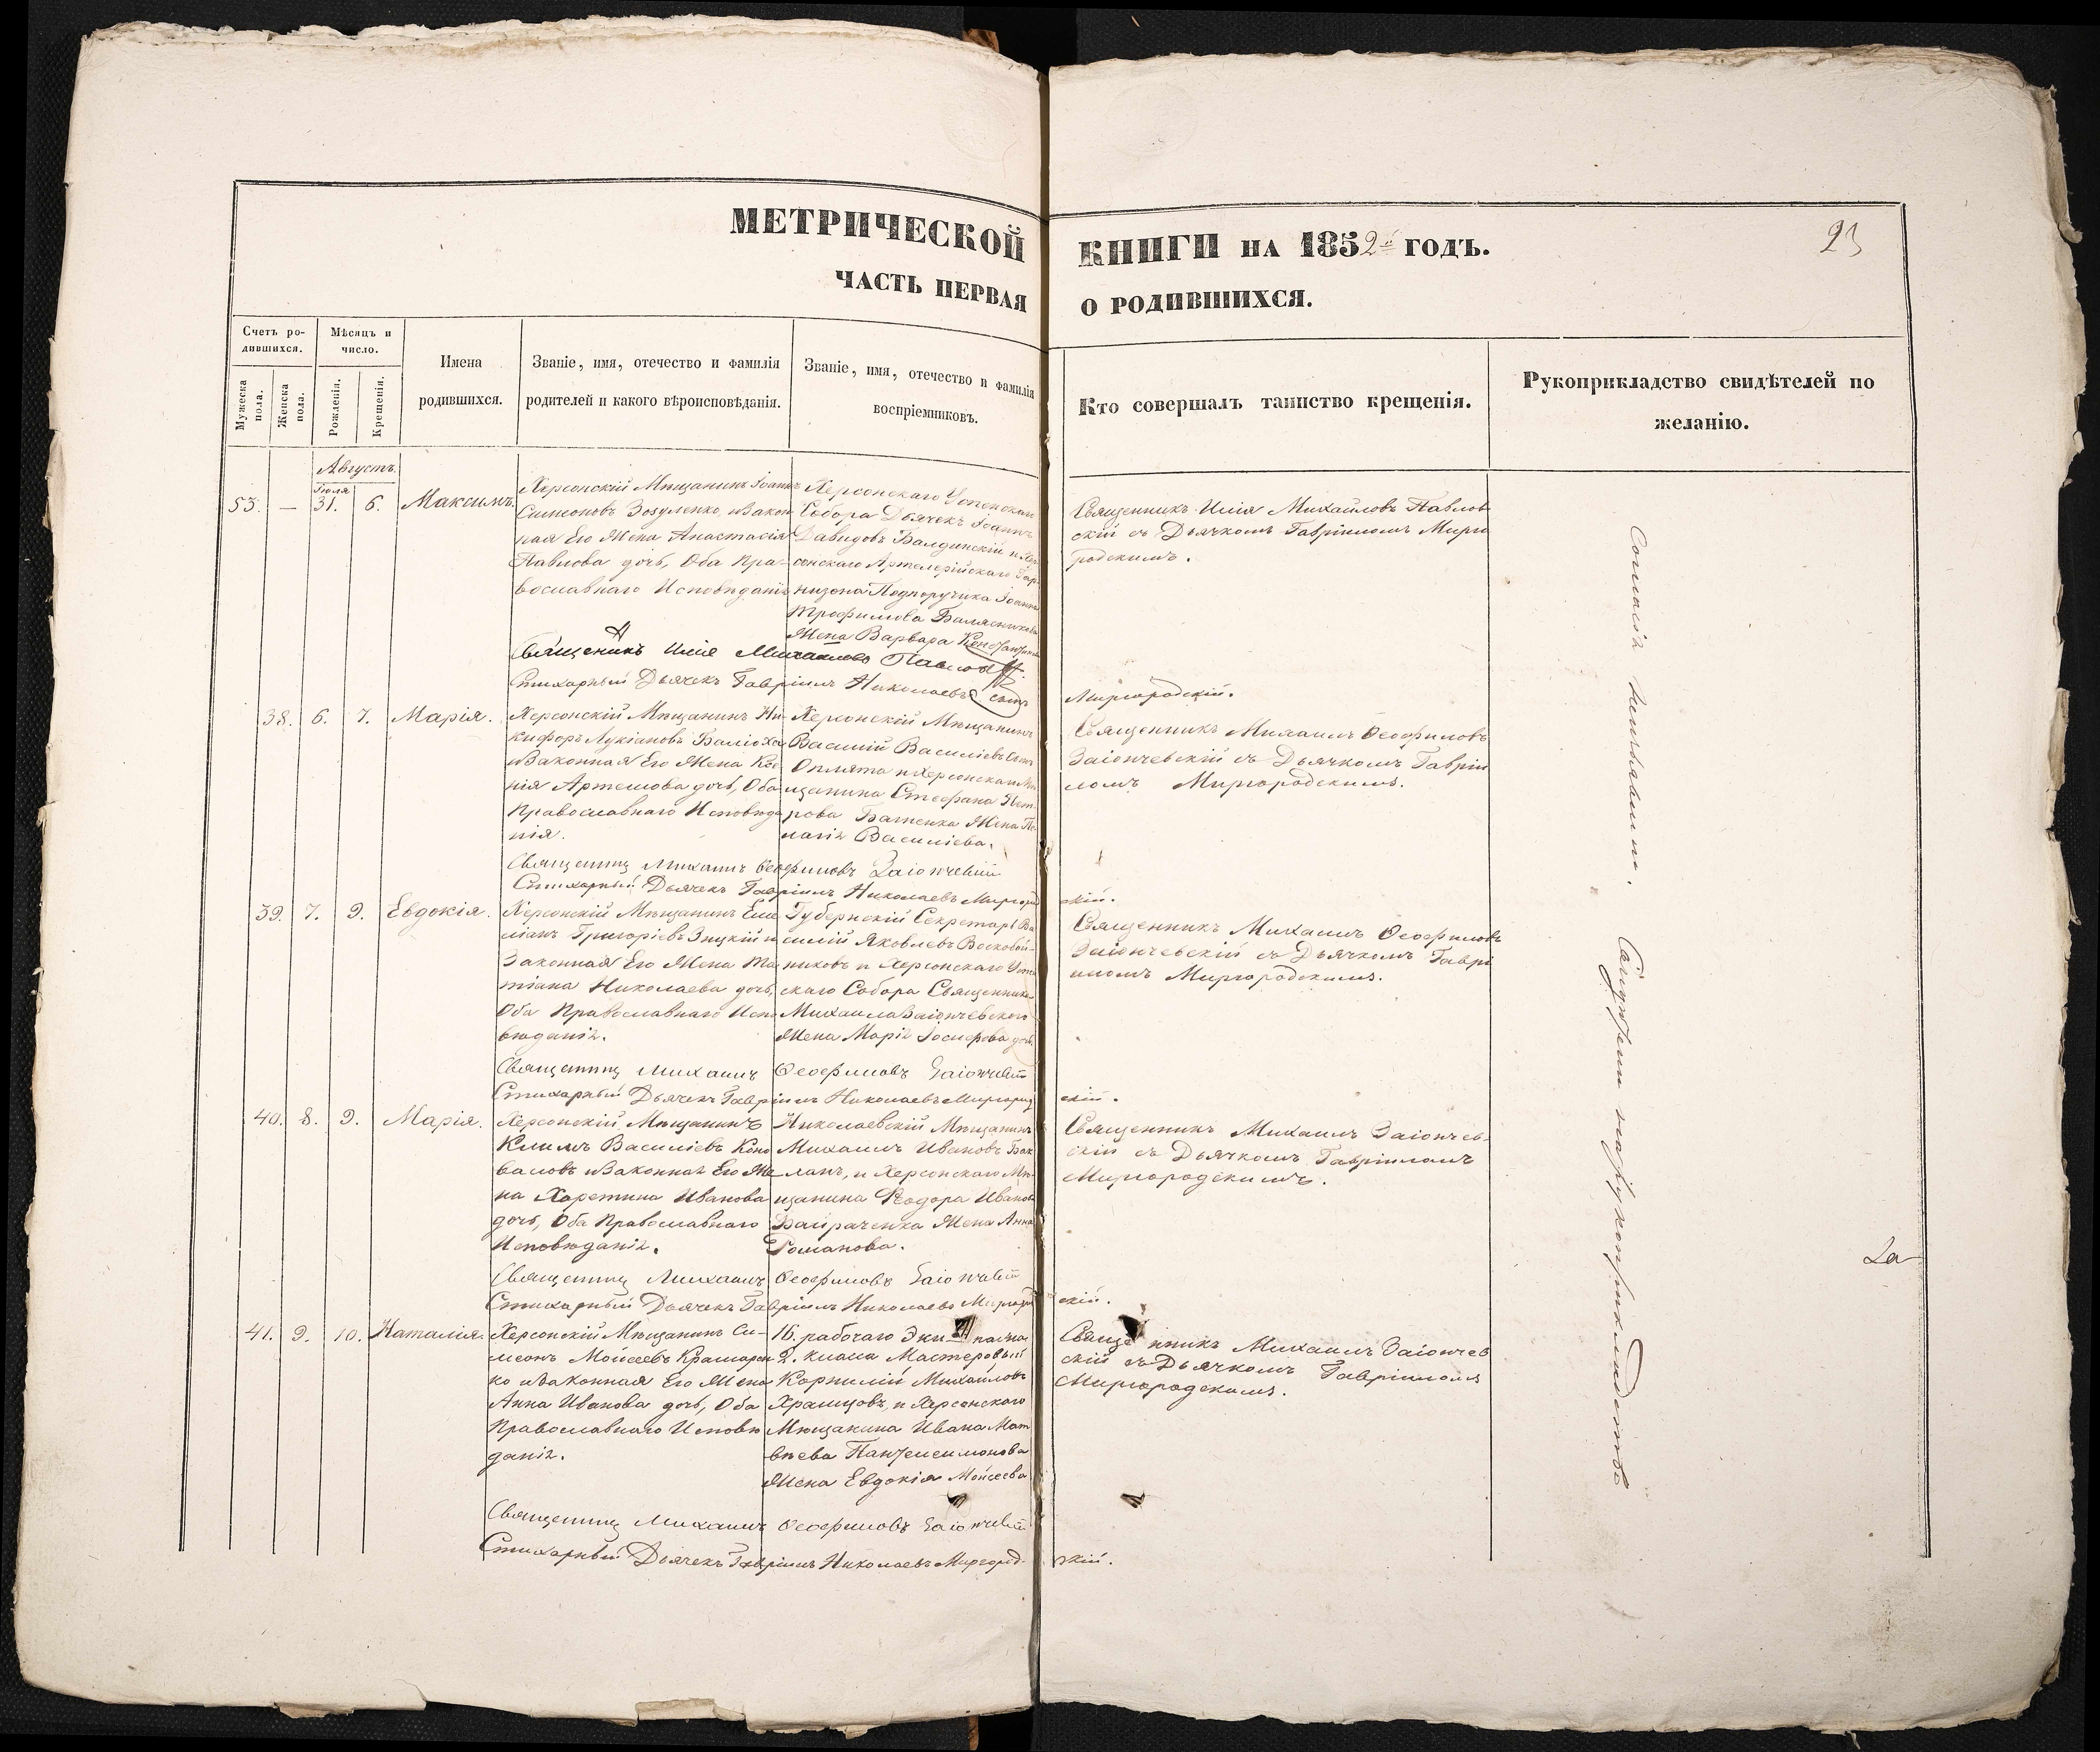 МЕТРИЧЕСКОЙ
ЧАСТЬ ПЕРВАЯ
КНИГИ НА 1852й ГОДЪ.
О РОДИВШИХСЯ.
23
Счетъ ро-
дившихся.
Мужеска пола.
Женска пола.
Мѣсяцъ и
число.
Рожденія.
Крещенія.
Имена
родившихся.
Званіе, имя, отечество и фамилія
родителей и какого вѣроисповѣданія.
Званіе, имя, отечество и фамилія
воспріемниковъ.
Кто совершалъ таинство крещенія.
Рукоприкладство свидѣтелей по
желанію.
Августъ.
Іюля
53. — 31. 6. Максимъ.
Херсонскій Мѣщанинъ Іоаннъ
Симеоновъ Зозуленко, и Закон
ная Его Жена Анастасія
Павлова дочь, Оба Пра-
вославнаго Исповѣданія
Херсонскаго Успенскаго
Собора Дьячекъ Іоаннъ
Давидовъ Балдинскій и Хер
сонскаго Артелерійскаго Гар
низона Подпоручика Іоанна
Трофимова
Жена Варвара
Священникъ Илія Михайловъ Павлов
скій съ Дьячкомъ Гавріиломъ Мирго
родскимъ.
Священникъ Илія Михайловъ
Стихарный Дьячекъ Гавріилъ Николаевъ сынъ
Миргородскій.
38. 6. 7. Марія.
Херсонскій Мѣщанинъ Ни-
кифоръ Лукіановъ
и Законная Его Жена Ксе
нія Артемова дочь, Оба
Православнаго Исповѣда
нія.
Херсонскій Мѣщанинъ
Василій Василіевъ Сынъ
и Херсонскаго Мѣ
щанина Стефана Пет-
рова Жена Пе
лагія Василіева.
Священникъ Михаилъ Ѳеофиловъ
Заіончевскій съ Дьячкомъ Гавріи
ломъ Миргородскимъ.
Священникъ Михаилъ Ѳеофиловъ Заіончевскій
Стихарный Дьячекъ Гавріилъ Николаевъ Миргород
скій.
39. 7. 9. Евдокія.
Херсонскій Мѣщанинъ Еми
ліанъ Григоріевъ и
Законная Его Жена Та
тіана Николаева дочь,
Оба Православнаго Испо
вѣданія.
Губернскій Секретарь Ва
силій Яковлевъ Воскобой-
никовъ и Херсонскаго Успен
скаго Собора Священника
Михаила Заіончевскаго
Жена Марія Іосифова дочь
Священникъ Михаилъ Ѳеофиловъ
Заіончевскій съ Дьячкомъ Гаврі
иломъ Миргородскимъ.
Священникъ Михаилъ Ѳеофиловъ Заіончевскій
Стихарный Дьячекъ Гавріилъ Николаевъ Миргород
скій.
40. 8. 9. Марія.
Херсонскій Мѣщанинъ
Климъ Василіевъ Коно
валовъ и Законная Его Же
на Харетина Иванова
дочь, Оба Православнаго
Исповѣданія.
Николаевскій Мѣщанинъ
Михаилъ Ивановъ Бак
ланъ, и Херсонскаго Мѣ-
щанина Ѳеодора Иванова
Байраченка Жена Анна
Романова.
Священникъ Михаилъ Заіончев-
скій съ Дьячкомъ Гавріиломъ
Миргородскимъ.
Священникъ Михаилъ Ѳеофиловъ Заіончевскій
Стихарный Дьячекъ Гавріилъ Николаевъ Миргород
скій.
41. 9. 10. Наталія.
Херсонскій Мѣщанинъ Си-
меонъ Мойсеевъ Крамарен
ко и Законная Его Жена
Анна Иванова дочь, Оба
Православнаго Исповѣ
данія.
16. рабочаго Экипажа
2. класа Мастеровый
Корнилій Михайловъ
Храмцовъ, и Херсонскаго
Мѣщанина Ивана Мат
вѣева Пантелеимонова
Жена Евдокія Мойсеева
Священникъ Михаилъ Заіончев
скій съ Дьячкомъ Гавріиломъ
Миргородскимъ.
Священникъ Михаилъ Ѳеофиловъ Заіончевскій
Стихарный Дьячекъ Гавріилъ Николаевъ Миргород-
скій.